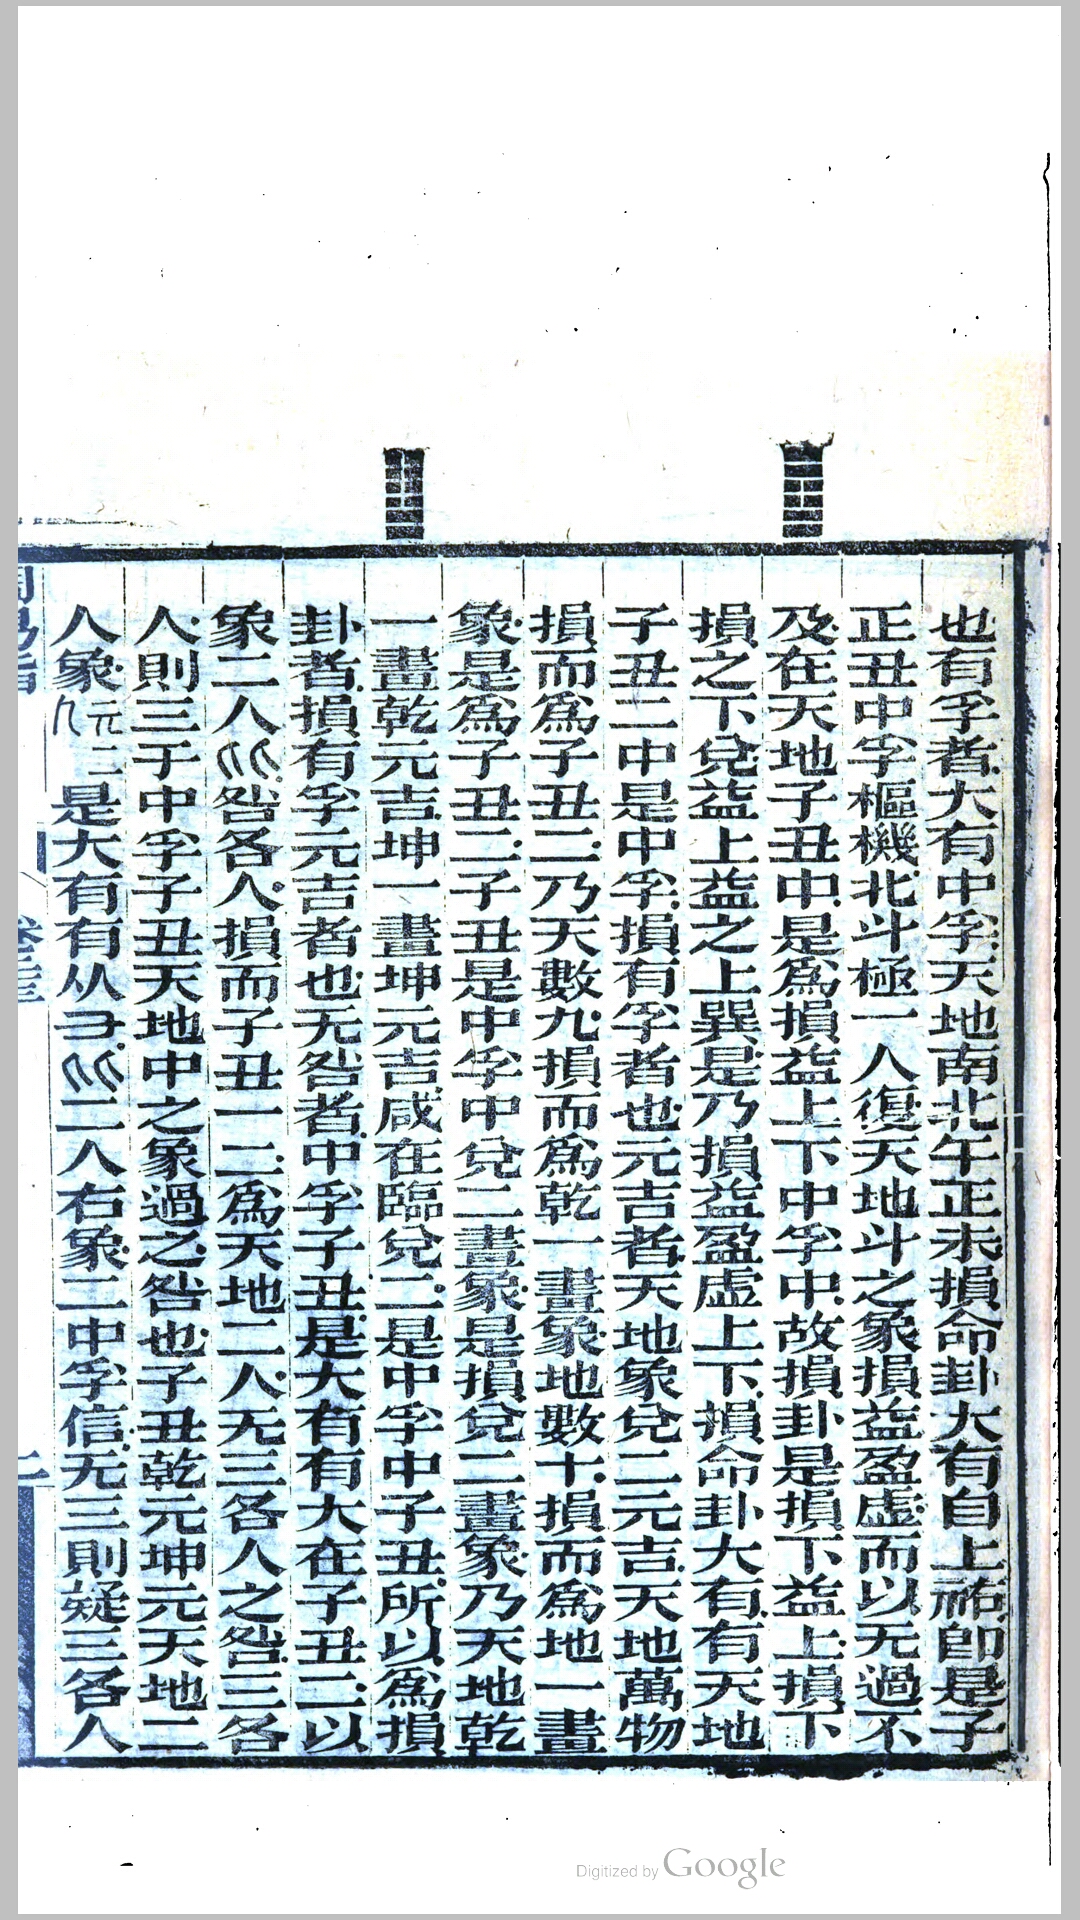 也有孚者大有中孚天地南北午正未損命卦大有自上祐卽是子
正丑中孚樞機北斗極一人復天地斗之象損益盈虛而以无過不
及在天地子丑中是爲損益上下中孚中故損卦是損下益上損下
損之下兌益上益之上巽是乃損益盈虛上下損命卦大有有天地
子丑二中是中孚損有孚者也元吉者天地象兌二元吉天地萬物
損而爲子丑二乃天數九損而爲乾一畫象地數十損而爲地一畫
象是爲子丑二子丑是中孚中兌二畫象是損兌二畫象乃天地乾
一畫乾元吉坤一畫坤元吉咸在臨兌二是中孚中子丑所以爲損
卦者損有孚元吉者也无咎者中孚子丑是大有有大在子丑二以
象二人巛咎各人損而子丑一二爲天地二人无三各人之咎三各
人則三于中孚子丑天地中之象過之咎也子丑乾元坤元天地二
人象是大有有从彐巛二人右象二中孚信无三則疑三各人
二
Digitized by Google